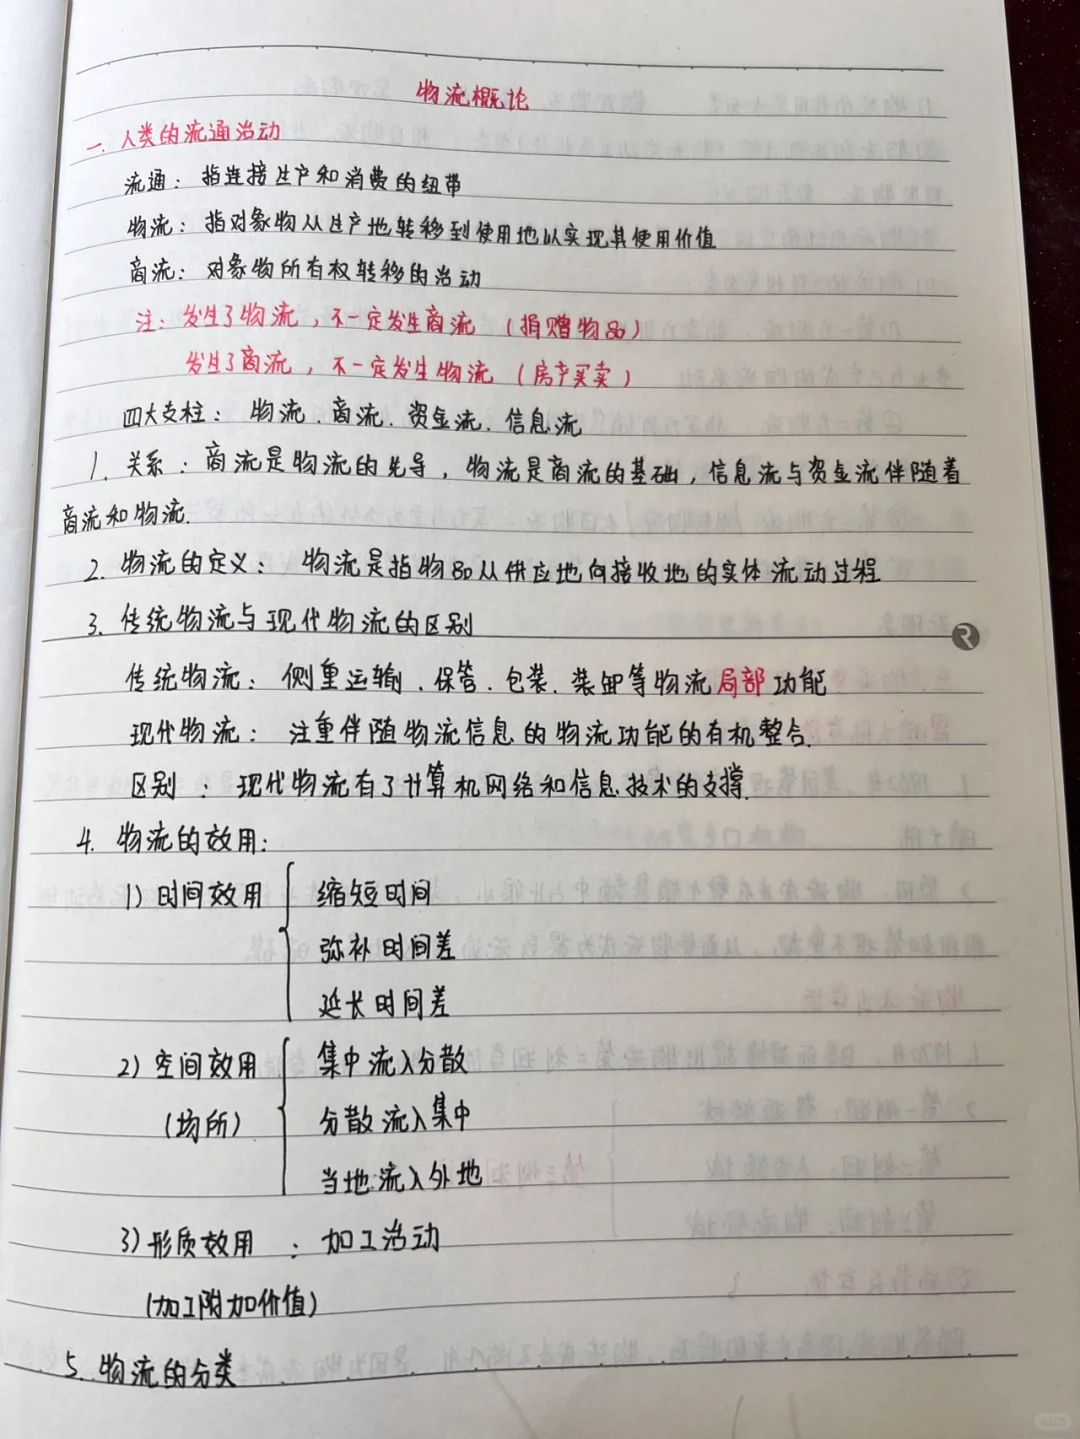 物流概论
一. 人类的流通活动
流通：指连接生产和消费的纽带
物流：指对象物从生产地转移到使用地以实现其使用价值
商流：对象物所有权转移的活动
注：发生了物流，不一定发生商流（捐赠物品）
发生了商流，不一定发生物流（房产买卖）
四大支柱：物流、商流、资金流、信息流
1. 关系：商流是物流的先导，物流是商流的基础，信息流与资金流伴随着
商流和物流.
2. 物流的定义：物流是指物品从供应地向接收地的实体流动过程
3. 传统物流与现代物流的区别
传统物流：侧重运输、保管、包装、装卸等物流局部功能
现代物流：注重伴随物流信息的物流功能的有机整合.
区别：现代物流有了计算机网络和信息技术的支撑.
4. 物流的效用：
1) 时间效用
缩短时间
弥补时间差
延长时间差
2) 空间效用
(场所)
集中流入分散
分散流入集中
当地流入外地
3) 形质效用：加工活动
(加工附加价值)
5. 物流的分类